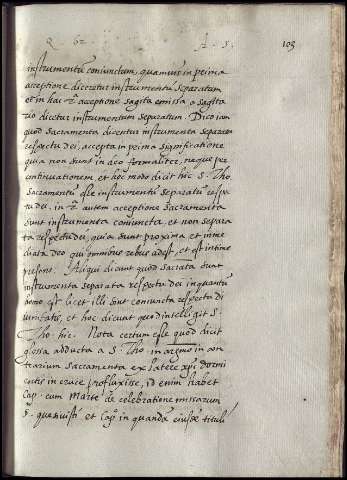 Q. 62. A. 5. 103
instrumentũ coniunctum, quamuis in prima
acceptione diceretur instrumentũ separatum
et in hac 2ª acceptione sagita emissa a sagita
rio dicetur instrumentum separatum. Dico ian
quod sacramenta dicentur instrumenta separata
respectu dei, accepta in prima significatione
quia non sunt in deo formaliter, neque per
continuationem et hoc modo dicit hic S. Tho
sacramentũ esse instrumentũ separatũ respe
tu dei, in 2ª autem acceptione sacramenta
sunt instrumenta coniuncta, et non separa
ta respectu dei, quia sunt proxima et inme
diata deo qui omnibus rebus adest, et est intime
presens. Aliqui dicunt quod sacrata sunt
instrumenta separata respectu dei inquantũ
homo est licet illi sint coniuncta respectu di
uinitatis, et hoc dicunt quod intelligit S.
Tho hic. Nota certum esse quod dicit
glossa adducta a S. Tho in argumento in con
trarium sacramenta ex latere xpi dormi
entis in cruce profluxisse, id enim habet
Cap. cum Marte de celebratione missarum
§. quaesiuisti et Capº in quanda eiusdẽ tituli